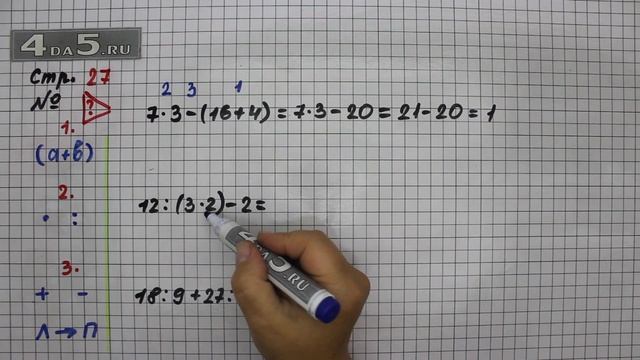 4DA5.RU
Стр. 27
№ ?
2 3 1
7·3-(16+4)=7·3-20=21-20=1
1.
(а+в)
2.
· :
12:(3·2)-2=
4DA5.RU
3.
+ -
18:9+27:
Л→П